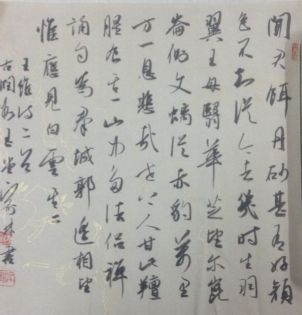 聞君餌丹砂甚有好顏
色不知從今去幾時生羽
翼王母翳華芝望爾崑
崙側文螭從赤豹萬里
方一息悲哉世上人甘此羶
腥食其一山中多法侶禪
誦自為群城郭遙相望
惟應見白雲其二
王維詩二首